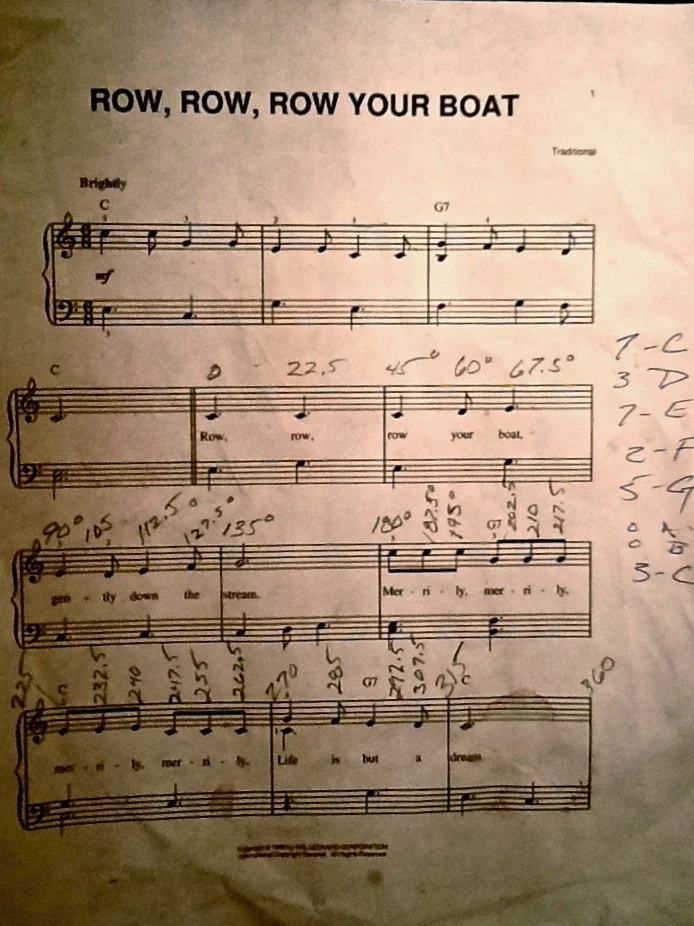 ROW, ROW, ROW YOUR BOAT
1
Traditional
Brightly
C G7
mf
C 0 22.5 45° 60° 67.5°
Row, row, row your boat,
90° 105 112.5° 127.5° 135° 180° 187.5° 195° G7 202.5 210 217.5
gen - tly down the stream. Mer - ri - ly, mer - ri - ly,
225 232.5 240 247.5 255 262.5 270 285 G7 292.5 307.5 315 C 360
mer - ri - ly, mer - ri - ly, Life is but a dream.
International Copyright Secured All Rights Reserved
7-C
3 D
7-E
2-F
5-G
0 A
0 B
3-C